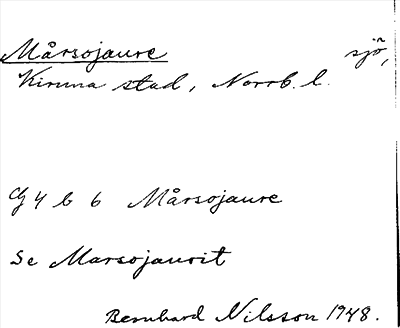 Mårsojaure sjö,
Kiruna stad, Norrb. l.
G4 b 6 Mårsojaure
Se Marsojaurit
Bernhard Nilsson 1948.